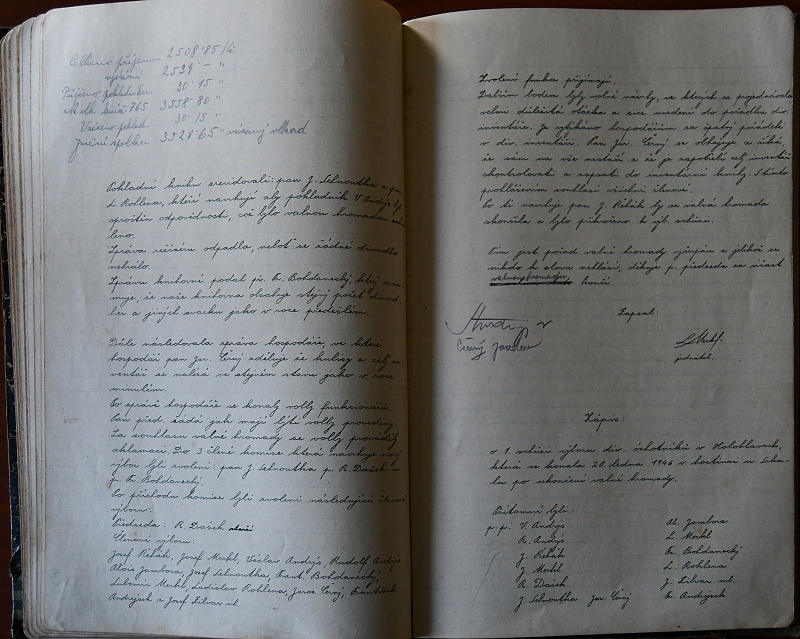 Celkem příjem 2508·85 Kč
vydání 2539 - "
Přijmeno pokladníkem 30·15 "
765 3558·80 "
30·15 "
Jmění spolku 3528·65 " vázaný vklad
Pokladní knihu revidovali: pan J. Sehnoutka a pan
L. Rohlena, kteří navrhují aby pokladník V. Andrýs byl
sproštěn odpovědnosti, což bylo valnou hromadou
leno.
Zpráva režisérů odpadla, neboť se žádné divadlo
nehrálo.
Zprávu knihovní podal př. Fr. Bohdanecký, který
muje, že naše knihovna obsahuje stejný počet divad.
her a jiných svazků jako v roce předešlém.
Dále následovala zpráva hospodáře, ve které
hospodář pan Jar. Černý sděluje že kulisy a celý in-
ventář se nalézá ve stejném stavu jako v roce
minulém.
Po zprávě hospodáře se konaly volby funkcionářů.
Pan před. žádá jak mají býti volby provedeny.
Za souhlasu valné hromady se volby prováděly
aklamací. Do 3 členné komise která navrhuje nový
výbor byli zvoleni: pan J. Sehnoutka p. R. Dašek a
p. Fr. Bohdanecký.
Po příchodu komise byli zvoleni následující členové
výboru:
Předseda: R. Dašek starší
Členové výboru:
Josef Řehák, Josef Merkl, Václav Andrýs, Rudolf Andrýs
Alois Jambora, Josef Sehnoutka, Frant. Bohdanecký,
Lubomír Merkl, Ladislav Rohlena, Jarosl. Černý, František
Andrejsek a Josef Litvar ml.
Zvolení funkce přijímají.
Dalším bodem byly volné návrhy, ve kterých se projednávala
velmi důležitá otázka a sice uvedení do pořádku div.
inventáře. Je vytýkáno hospodářům za špatný pořádek
v div. inventáři. Pan Jar. Černý se obhajuje a říká,
že sám na vše nestačí a že je zapotřebí celý inventář
zkontrolovati a zapsati do inventární knihy. S tímto
prohlášením souhlasí všichni členové.
Po té navrhuje pan J. Řehák by se valná hromada
skončila a bylo přikročeno k výb. schůzi.
Tím jest pořad valné hromady vyčerpán a jelikož se
nikdo k slovu nehlásí, děkuje p. předseda za účast
valnou hromadu končí.
Zapsal:
Černý Jaroslav
L. Merkl.
jednatel.
Zápis:
o 1. schůzi výboru div. ochotníků v Holohlavech,
která se konala 20. ledna 1946 v hostinci u
lu po ukončení valné hromady.
Přítomni byli:
p. p. V. Andrýs Al. Jambora
R. Andrýs L. Merkl
J. Řehák Fr. Bohdanecký
J. Merkl L. Rohlena
R. Dašek J. Litvar ml.
J. Sehnoutka Jar. Černý Fr. Andrejsek